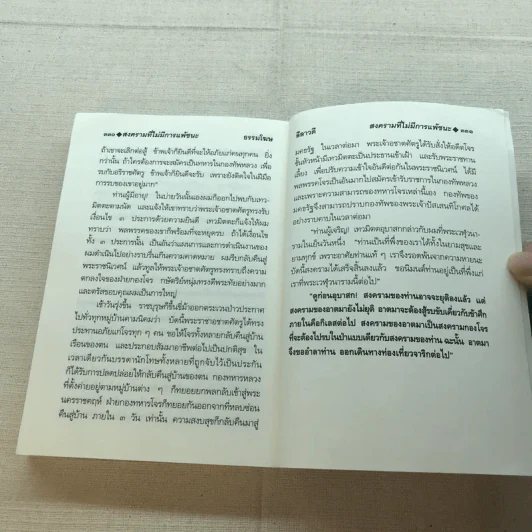 ๓๓๐ ◆ สงครามที่ไม่มีการแพ้ชนะ ธรรมโฆษ
ถ้าเขาจะเลิกต่อสู้ ข้าพเจ้าก็ยินดีที่จะให้อภัยแก่คนทุกคน ยิ่ง
กว่านั้น ถ้าใครต้องการจะสมัครเป็นทหารในกองทัพหลวง เพื่อ
รบกับอริราชศัตรู ข้าพเจ้าก็ยินดีจะรับ เพราะยังติดใจในฝีมือ
การรบของเขาอยู่มาก"
"ท่านผู้มีอายุ! ในบ่ายวันนั้นผมก็ออกไปพบกับเทว-
มิตตะตามนัด และแจ้งให้เขาทราบว่าพระเจ้าอชาตศัตรูทรงรับ
เงื่อนไข ๓ ประการด้วยความยินดี เทวมิตตะก็แจ้งให้ผม
ทราบว่า พลพรรคของเขาก็พร้อมที่จะหยุดรบ ถ้าได้เงื่อนไข
ทั้ง ๓ ประการนั้น เป็นอันว่าแผนการและการดำเนินงานของ
ผมดำเนินไปอย่างราบรื่นเกินความคาดหมาย ผมรีบกลับคืนสู่
พระราชนิเวศน์ แล้วทูลให้พระเจ้าอชาตศัตรูทรงทราบถึงความ
ตกลงใจของฝ่ายกองโจร กษัตริย์หนุ่มทรงดีพระทัยอย่างมาก
และตรัสขอบคุณผมเป็นการใหญ่
เช้าวันรุ่งขึ้น ราชบุรุษก็ขึ้นขี่ม้าออกตระเวนป่าวประกาศ
ไปทั่วทุกหมู่บ้านตามนิคมว่า บัดนี้พระราชาอชาตศัตรูได้ทรง
ประทานอภัยแก่โจรทุก ๆ คน ขอให้โจรทั้งหลายกลับคืนสู่บ้าน
เรือนของตน และประกอบสัมมาอาชีพต่อไปเป็นปกติสุข ใน
เวลาเดียวกันบรรดานักโทษทั้งหลายที่ถูกจับไว้เป็นประกัน
ก็ได้รับการปลดปล่อยให้กลับคืนสู่บ้านของตน กองทหารหลวง
ที่ตั้งค่ายอยู่ตามหมู่บ้านต่าง ๆ ก็ทยอยยกพลกลับเข้าสู่พระ
นครราชคฤห์ ฝ่ายกองทหารโจรก็ทยอยกันออกจากที่หลบซ่อน
คืนสู่บ้าน ภายใน ๓ วัน เท่านั้น ความสงบสุขก็กลับคืนมาสู่
ลีลาวดี สงครามที่ไม่มีการแพ้ชนะ ◆ ๓๓๑
มคธรัฐ ในเวลาต่อมา พระเจ้าอชาตศัตรูได้รับสั่งให้อดีตโจร
ชั้นหัวหน้ามีเทวมิตตะเป็นประธานเข้าเฝ้า และรับพระราชทาน
เลี้ยง เพื่อปรับความเข้าใจอันดีต่อกันในพระราชนิเวศน์ ได้มี
พลพรรคโจรเป็นอันมากไปสมัครเข้ารับราชการในกองทัพหลวง
และเพราะความสามารถของทหารโจรเหล่านี้เอง กองทัพของ
มคธรัฐจึงสามารถปราบกองทัพของพระเจ้าปัสเสนทิโกศลได้
อย่างราบคาบในเวลาต่อมา
"ท่านผู้เจริญ! เทวมิตตอุบาสกกล่าวกับผมที่พระเวฬุวนา-
รามในเย็นวันหนึ่ง "ท่านเป็นที่พึ่งของเราได้ทั้งในยามสุขและ
ยามทุกข์ เพราะอาศัยท่านแท้ ๆ เราจึงรอดพ้นจากความหายนะ
บัดนี้สงครามได้เสร็จสิ้นลงแล้ว ขอนิมนต์ท่านอยู่เป็นที่พึ่งแก่
เราที่พระเวฬุวนารามนี้ต่อไป"
"ดูก่อนอุบาสก! สงครามของท่านอาจจะยุติลงแล้ว แต่
สงครามของอาตมายังไม่ยุติ อาตมาจะต้องสู้รบขับเคี่ยวกับข้าศึก
ภายในคือกิเลสต่อไป สงครามของอาตมาเป็นสงครามกองโจร
ที่จะต้องไปรบในป่าแบบเดียวกับสงครามของท่าน ฉะนั้น อาตมา
จึงขออำลาท่าน ออกเดินทางท่องเที่ยวจาริกต่อไป"